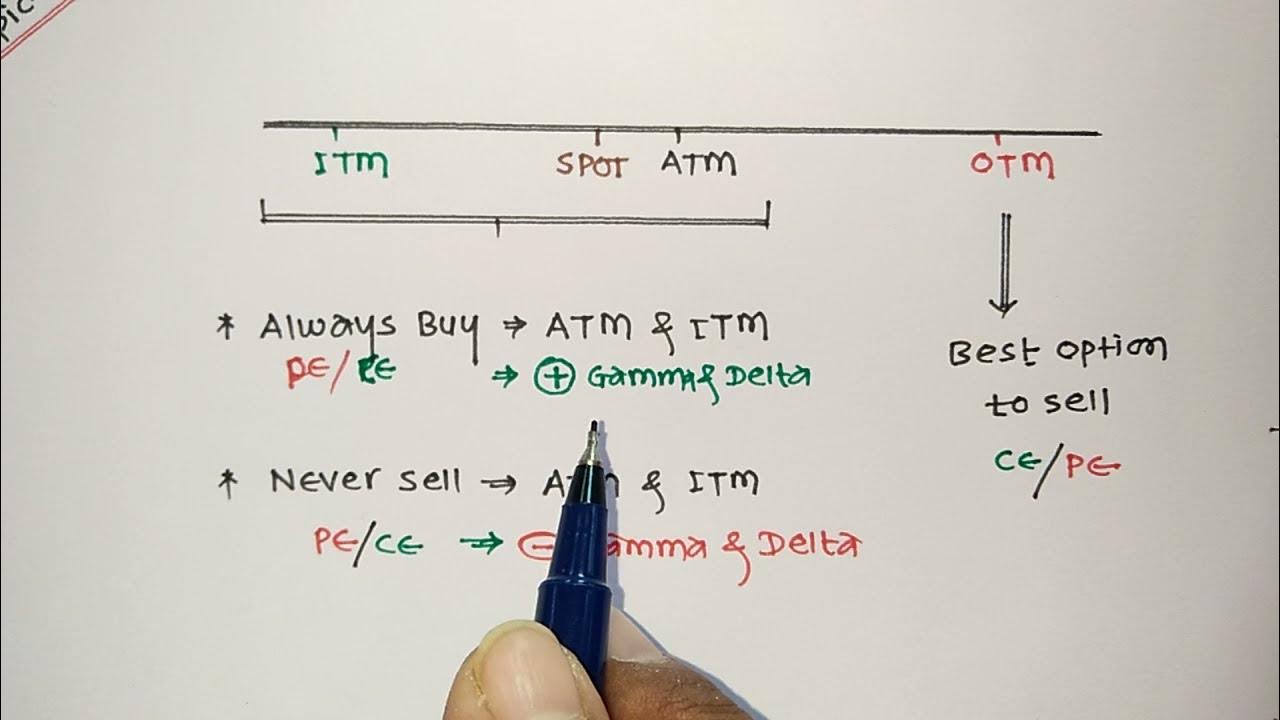 ITM SPOT ATM OTM
* Always Buy → ATM & ITM
PE/CE → + Gamma & Delta
Best option
to sell
CE/PE
* Never sell → & ITM
PE/CE → - Gamma & Delta